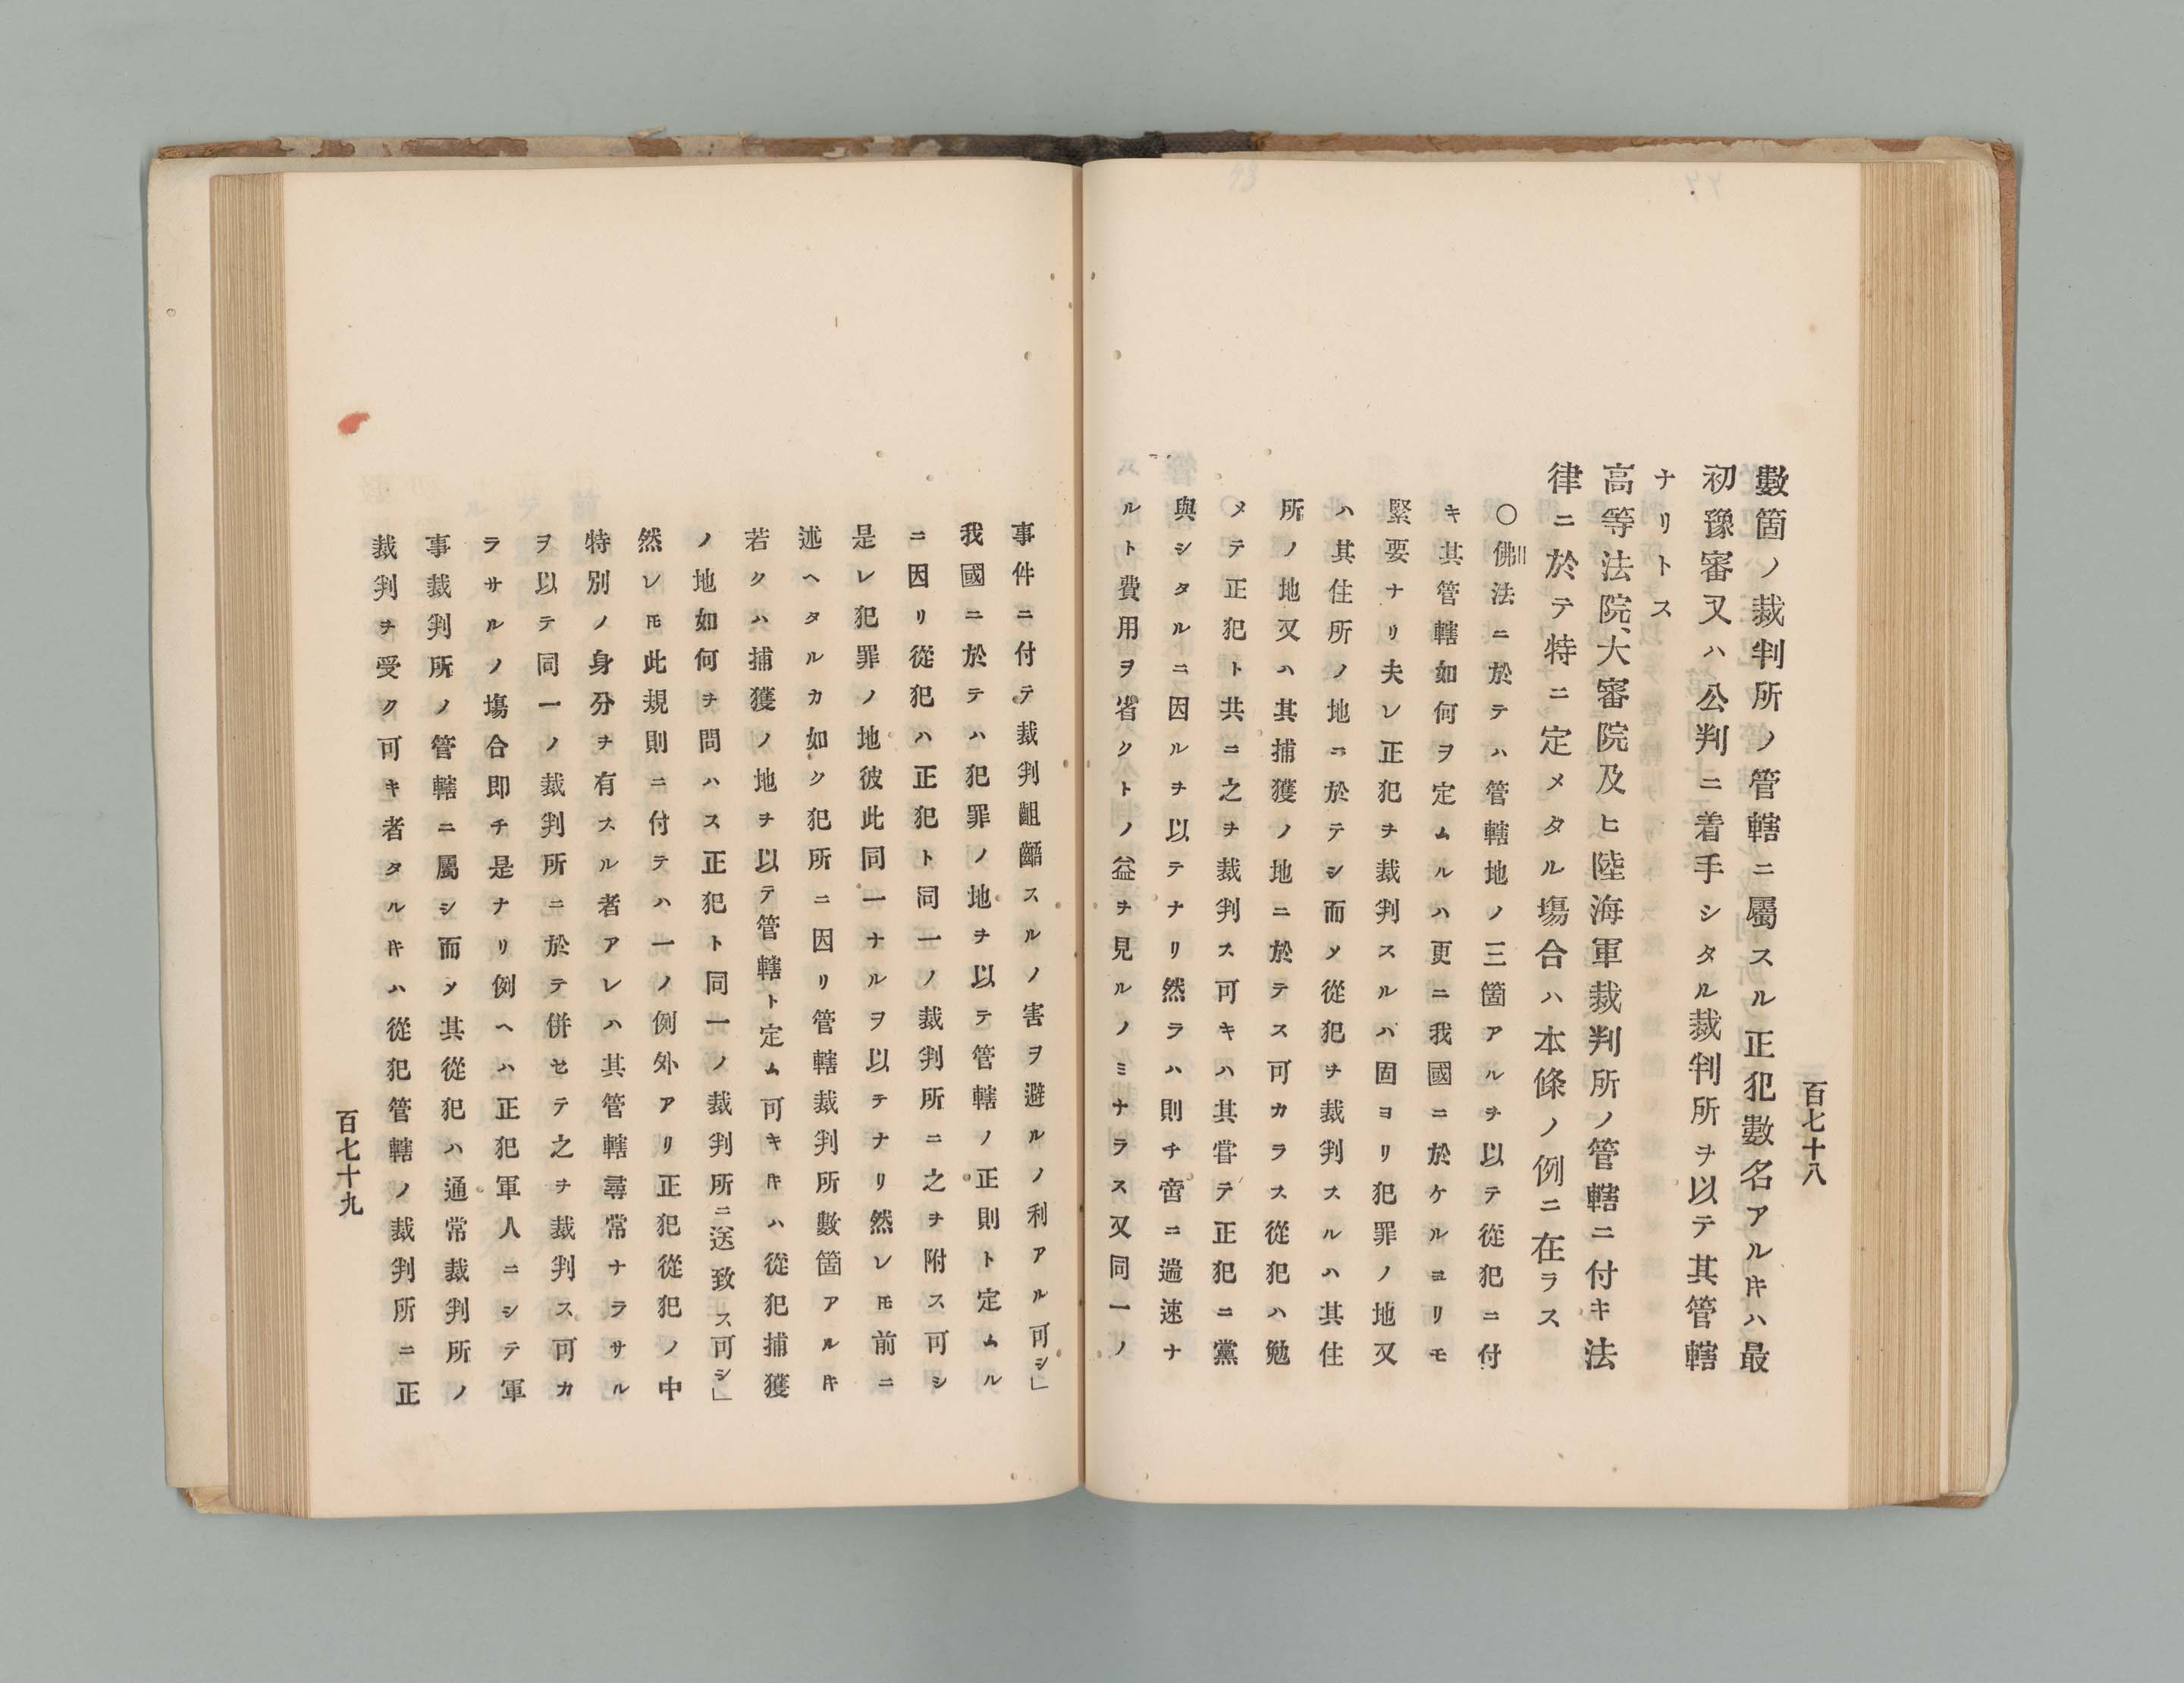 百七十八
數箇ノ裁判所ノ管轄ニ屬スル正犯數名アルキハ最
初豫審又ハ公判ニ着手シタル裁判所ヲ以テ其管轄
ナリトス
高等法院、大審院及ヒ陸海軍裁判所ノ管轄ニ付キ法
律ニ於テ特ニ定メタル塲合ハ本條ノ例ニ在ラス
〇佛法ニ於テハ管轄地ノ三箇アルヲ以テ從犯ニ付
キ其管轄如何ヲ定ムルハ更ニ我國ニ於ケルヨリモ
緊要ナリ夫レ正犯ヲ裁判スルハ固ヨリ犯罪ノ地又
ハ其住所ノ地ニ於テシ而メ從犯ヲ裁判スルハ其住
所ノ地又ハ其捕獲ノ地ニ於テス可カラス從犯ハ勉
メテ正犯ト共ニ之ヲ裁判ス可キハ其甞テ正犯ニ黨
與シタルニ因ルヲ以テナリ然ラハ則チ啻ニ遄速ナ
ルト費用ヲ省クトノ益ヲ見ルノミナラス又同一ノ
事件ニ付テ裁判齟齬スルノ害ヲ避ルノ利アル可シ」
我國ニ於テハ犯罪ノ地ヲ以テ管轄ノ正則ト定ムル
ニ因リ從犯ハ正犯ト同一ノ裁判所ニ之ヲ附ス可シ
是レ犯罪ノ地彼此同一ナルヲ以テナリ然レ𪜈前ニ
述ヘタルカ如ク犯所ニ因リ管轄裁判所數箇アルキ
若クハ捕獲ノ地ヲ以テ管轄ト定ム可キキハ從犯捕獲
ノ地如何ヲ問ハス正犯ト同一ノ裁判所ニ送致ス可シ」
然レ𪜈此規則ニ付テハ一ノ例外アリ正犯從犯ノ中
特別ノ身分ヲ有スル者アレハ其管轄尋常ナラサル
ヲ以テ同一ノ裁判所ニ於テ併セテ之ヲ裁判ス可カ
ラサルノ塲合即チ是ナリ例ヘハ正犯軍人ニシテ軍
事裁判所ノ管轄ニ屬シ而メ其從犯ハ通常裁判所ノ
裁判ヲ受ク可キ者タルキハ從犯管轄ノ裁判所ニ正
百七十九